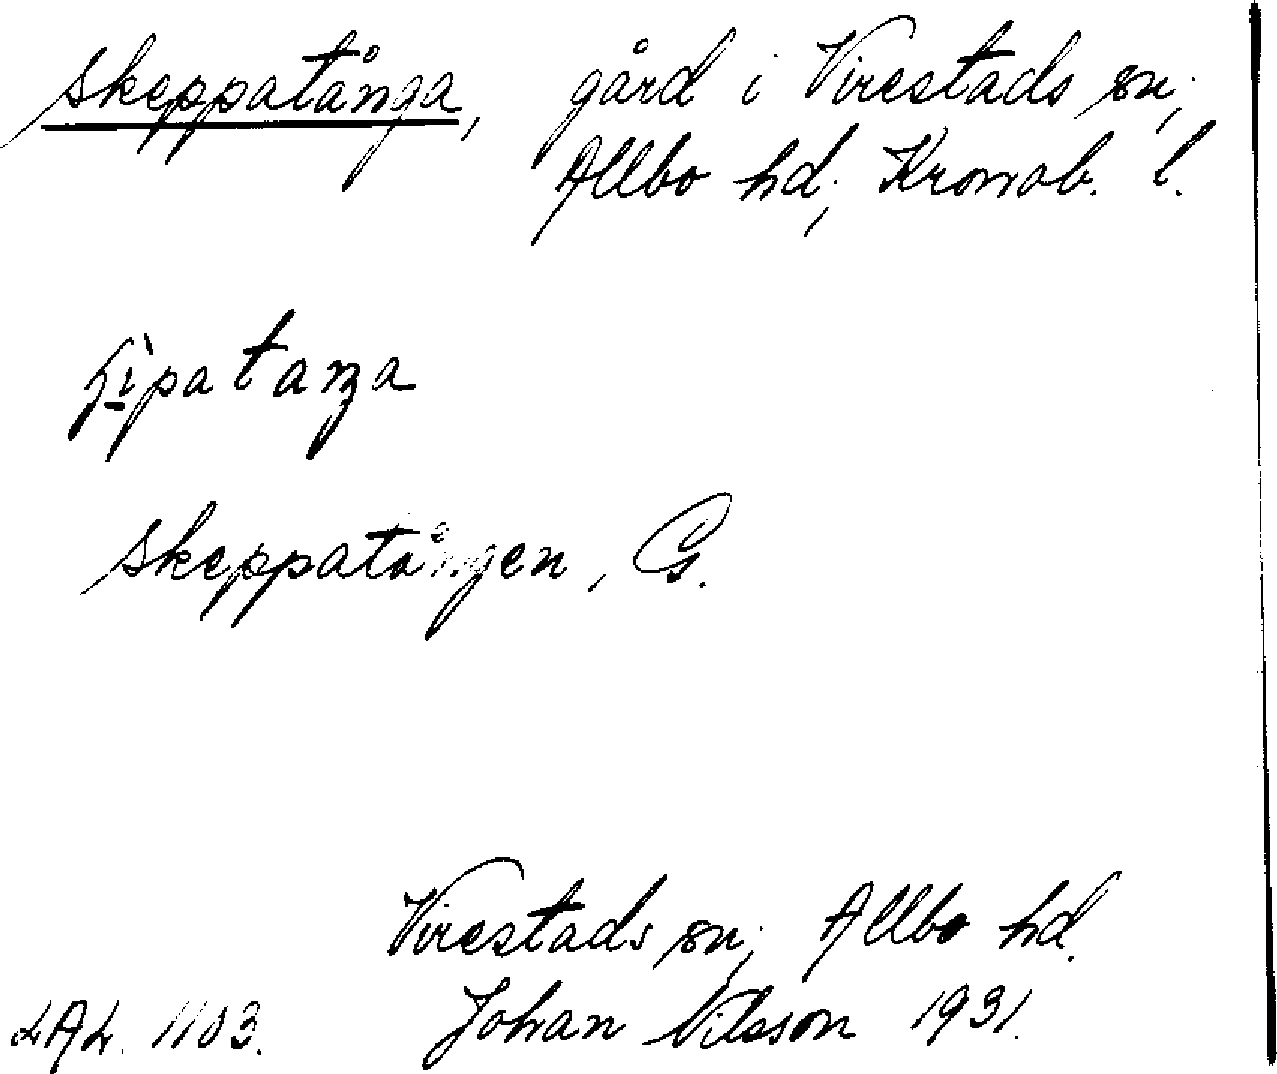 Skeppatånga, gård i Virestads sn,
Allbo hd, Kronob. l.
Skeppatången, G.
Virestads sn, Allbo hd.
LAL. 1103. Johan Nilsson 1931.